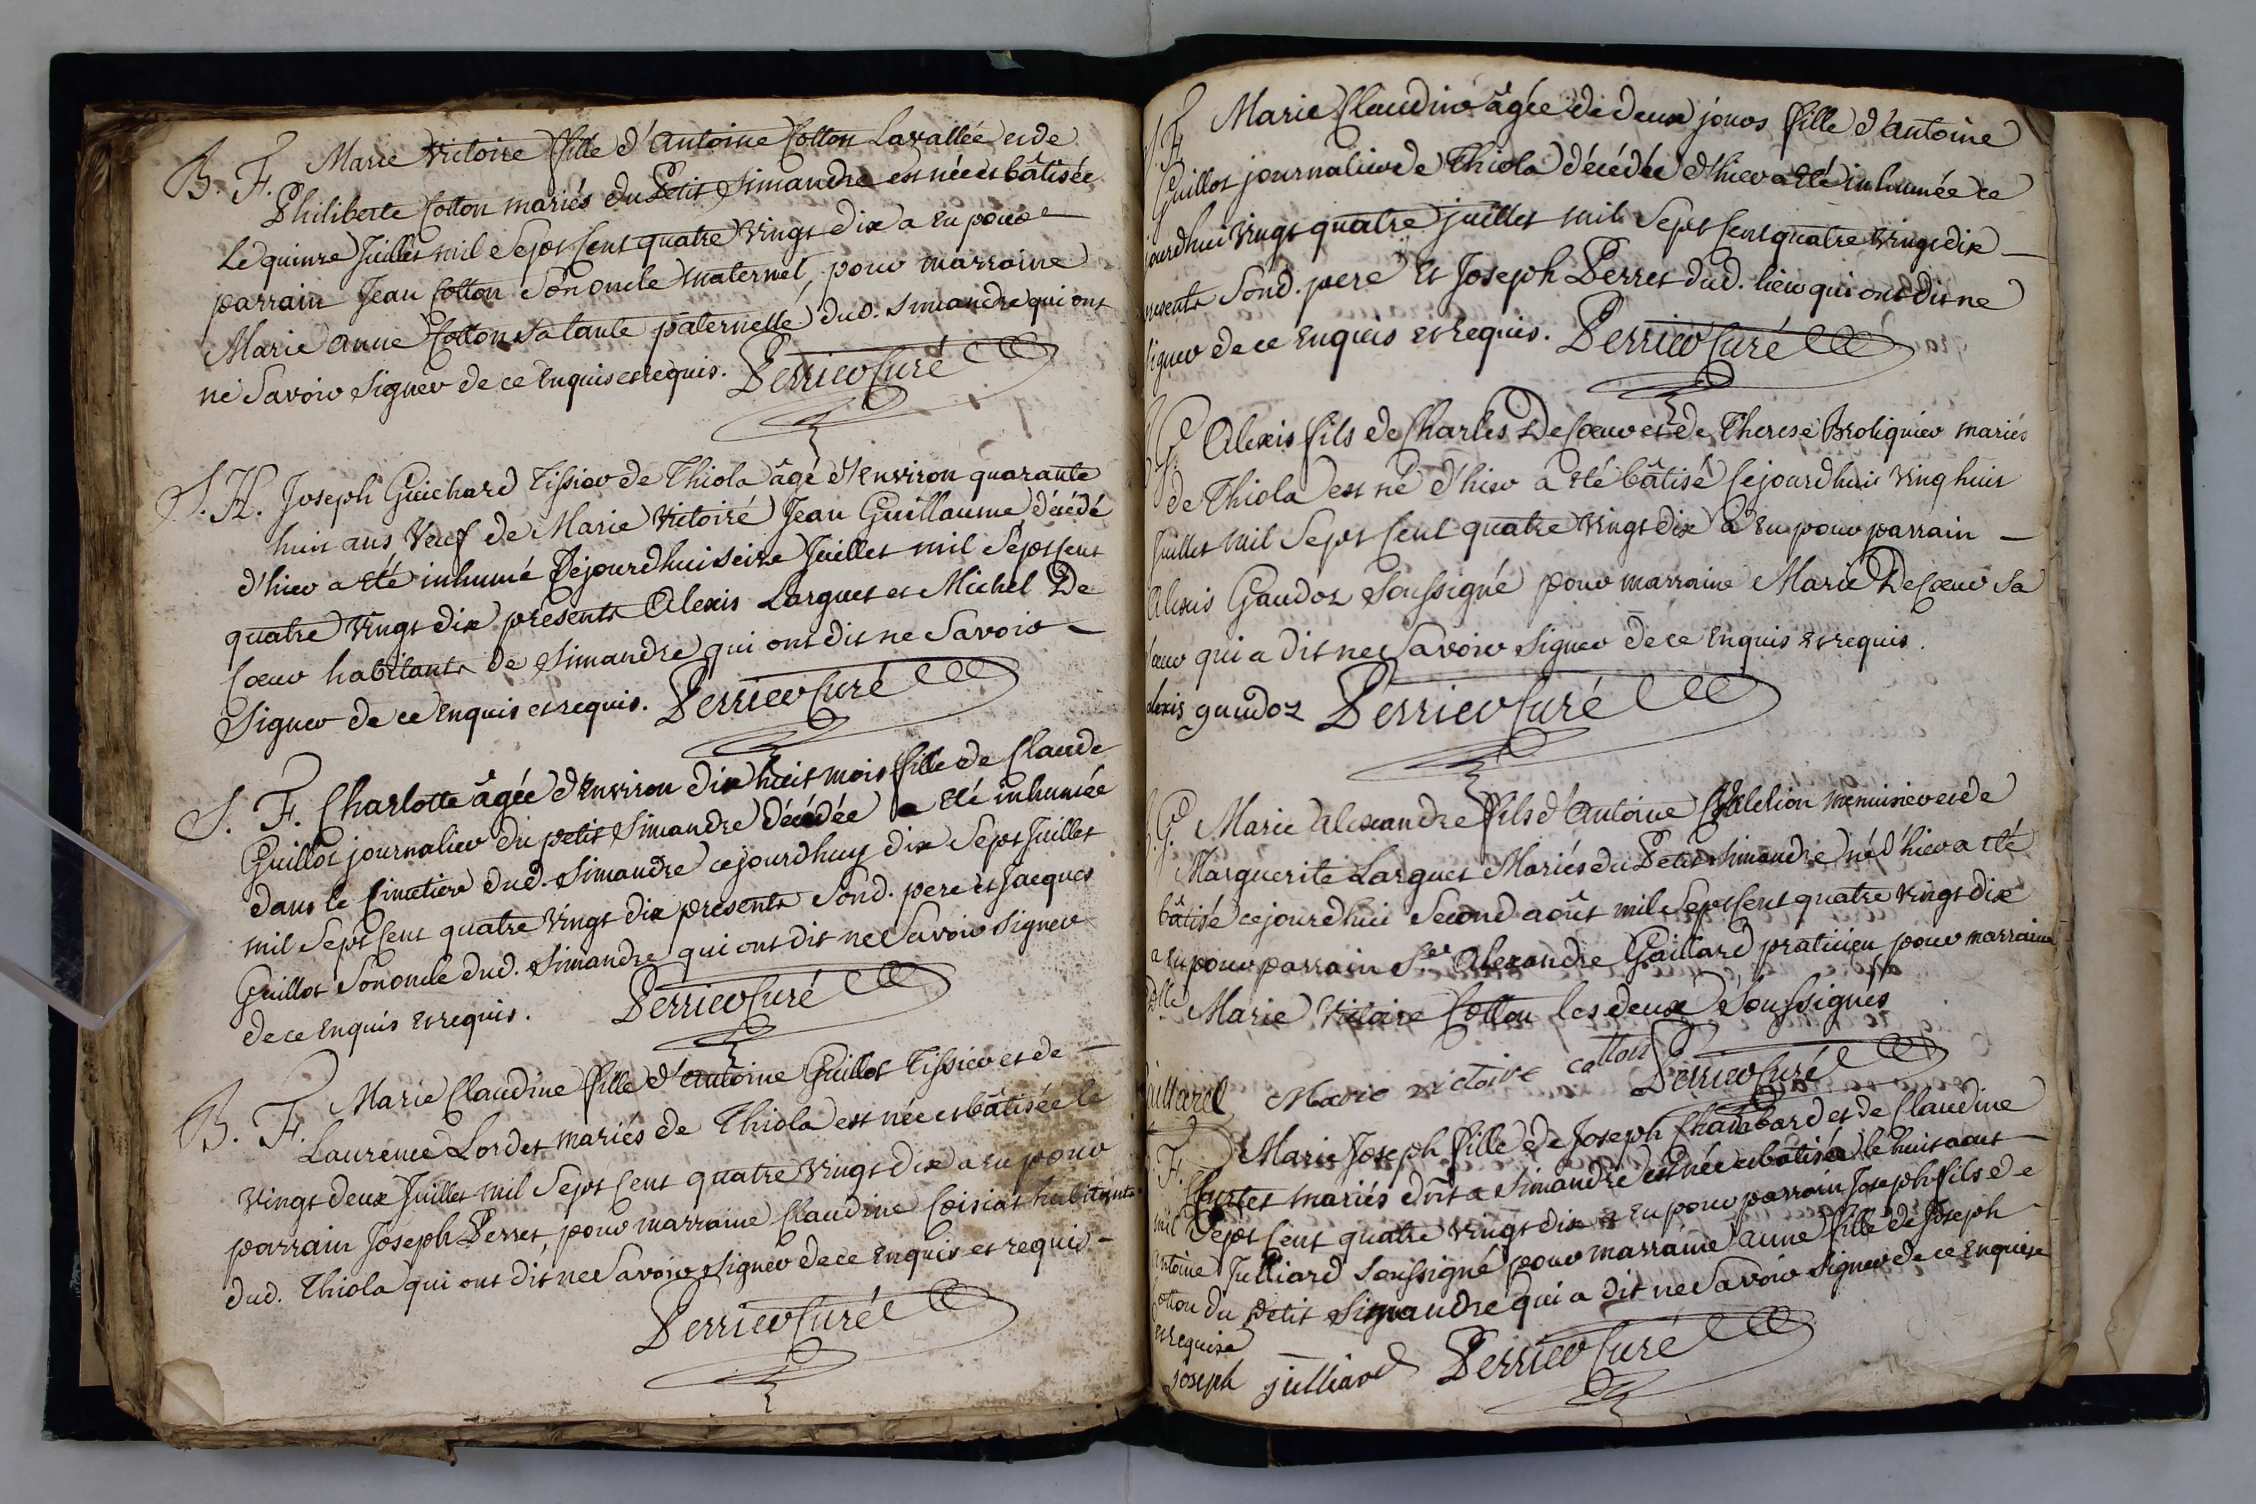 B. F. Marie Victoire fille d'Antoine Cotton Lavallée et de
Philiberte Cotton mariés du Petit Simandre est née et bâtisée
Le quinze Juillet mil Sept Cent quatre Vingt dix a Eu pour
parrain Jean Cotton Son oncle Maternel, pour marraine
Marie anne Cotton Sa tante paternelle dud. Simandre qui ont
ne Savoir Signer de ce Enquis et requis. Perrier Curé
S. H. Joseph Guichard Tissier de Thiola âgé d'Environ quarante
huit ans Veuf de Marie Victoire Jean Guillaume décédé
d'hier a Eté inhumé Cejourdhui seize Juillet mil Sept Cent
quatre Vingt dix presents Alexis Larguet et Michel De
Coeur habitants de Simandre qui ont dit ne Savoir
Signer de ce Enquis et requis. Perrier Curé
S. F. Charlotte âgée d'Environ dix huit mois fille de Claude
Guillot journalier du petit Simandre décédée a Eté inhumée
dans le Cimetiere dud. Simandre cejourdhuy dix Sept Juillet
mil Sept Cent quatre Vingt dix presents Sond. pere et Jacques
Guillot Son oncle dud. Simandre qui ont dit ne Savoir Signer
de ce Enquis et requis. Perrier Curé
B. F. Marie Claudine fille d'Antoine Guillot Tissier et de
Laurence Lordet mariés de Thiola est née et bâtisée le
Vingt deux Juillet mil Sept Cent quatre Vingt dix a Eu pour
parrain Joseph Perret, pour marraine Claudine Coisiat habitants
dud. Thiola qui ont dit ne Savoir Signer de ce Enquis et requis
Perrier Curé
S. F. Marie Claudine âgée de deux jours fille d'Antoine
Guillot journalier de Thiola décédée d'hier a Eté inhumée ce
jourdhui Vingt quatre juillet mil Sept Cent quatre Vingt dix
presents Sond. pere Et Joseph Perret dud. lieu qui ont dit ne
signer de ce Enquis et requis. Perrier Curé
G. Alexis fils de Charles De Coeur et de Therese Broliquier mariés
de Thiola est né d'hier a Eté bâtisé Cejourdhui Vingt huit
Juillet mil Sept Cent quatre Vingt dix a Eu pour parrain
Alexis Gaudoz Soussigné pour marraine Marie De Coeur Sa
soeur qui a dit ne Savoir Signer de ce Enquis et requis.
alexis gaudoz Perrier Curé
G. Marie Alexandre fils d'Antoine menuisier et de
Marguerite Larguet Mariés du Petit Simandre né d'hier a Eté
bâtisé cejourdhui Second août mil Sept Cent quatre Vingt dix
a Eu pour parrain Sr Alexandre Gaillard praticien pour marraine
Dlle Marie Victoire Cotton les deux Soussignés
Gaillard Marie victoire cotton Perrier Curé
F. Marie Joseph fille de Joseph Chambard et de Claudine
mariés dud. Simandre est née et bâtisée le huit aout
mil Sept Cent quatre Vingt dix a Eu pour parrain Joseph fils de
antoine Julliard Soussigné pour marraine anne fille de Joseph
Cotton du petit Simandre qui a dit ne Savoir Signer de ce Enquise
et requise
Joseph julliard Perrier Curé